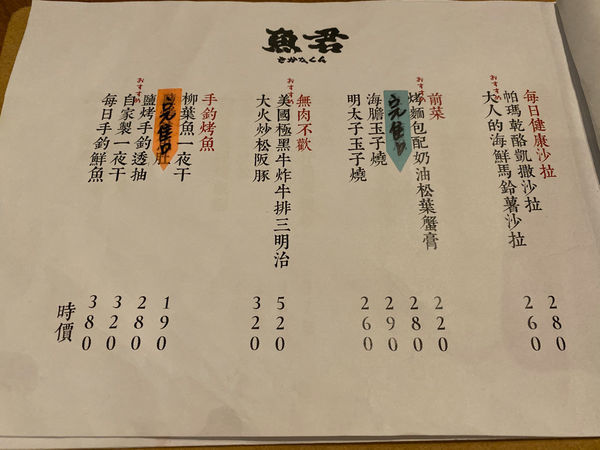 魚君
さかなくん
每日健康沙拉
帕瑪乾酪凱撒沙拉
280
おすすめ
大人的海鮮馬鈴薯沙拉
260
前菜
おすすめ
烤麵包配奶油松葉蟹膏
220
280
海膽玉子燒
290
明太子玉子燒
260
無肉不歡
おすすめ
美國極黑牛炸牛排三明治
520
大火炒松阪豚
320
手釣烤魚
柳葉魚一夜干
190
肚
280
おすすめ
鹽烤手釣透抽
320
自家製一夜干
380
每日手釣鮮魚
時價